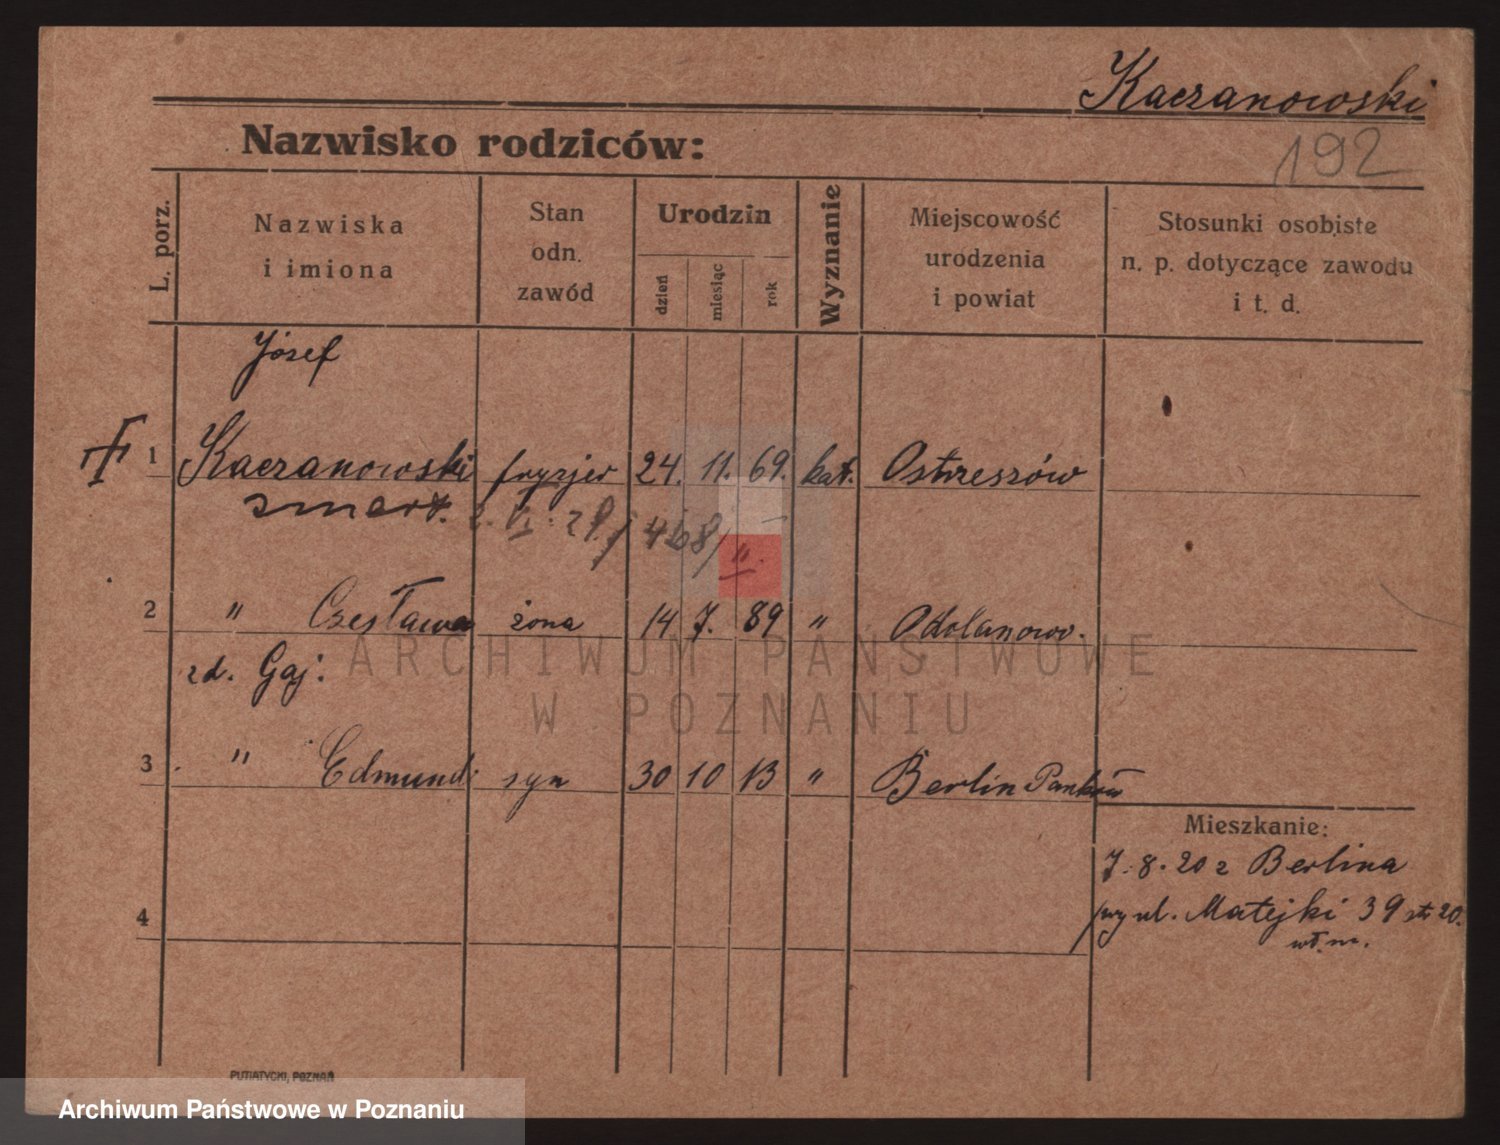 Kaczanowski
Nazwisko rodziców:
192
L. porz.
Nazwiska
i imiona
Stan
odn.
zawód
Urodzin
dzień
miesiąc
rok
Wyznanie
Miejscowość
urodzenia
i powiat
Stosunki osobiste
n. p. dotyczące zawodu
i t. d.
Józef
1 Kaczanowski fryzjer 24. 11. 69. kat. Ostrzeszów
zmarł. 468/II.
2 " Czesława żona 14 7. 89 " Odolanow.
zd. Gaj:
ARCHIWUM PAŃSTWOWE
W POZNANIU
3 " Edmund syn 30 10 13 " Berlin Pankow
Mieszkanie:
7.8.20 z Berlina
4 ul. Matejki 39
PUTIATYCKI, POZNAŃ
Archiwum Państwowe w Poznaniu